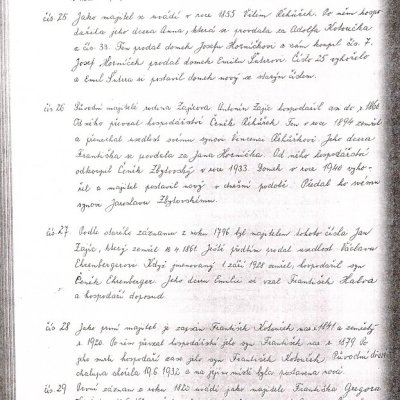 čís. 25 Jako majitel se uvádí v roce 1855 Vilém Řehářek. Po něm hospo-
dařila jeho dcera Anna, která se provdala za Adolfa Kotoučka
z čís. 33. Ten prodal domek Josefu Horníčkovi a sám koupil čís. 7.
Josef Horníček prodal domek Emilu Šuterovi. Číslo 25 vyhořelo
a Emil Šutera si postavil domek nový se starým číslem.
čís. 26 Původní majitelé rodina Zajícova. Antonín Zajíc hospodařil asi do r. 1866.
Od něho převzal hospodářství Čeněk Řehářek. Ten v roce 1894 zemřel
a přenechal usedlost svému synovi Vincenci Řehářkovi. Jeho dcera
Františka se provdala za Jana Horníčka. Od něho hospodářství
odkoupil Čeněk Zbytovský v roce 1933. Domek v roce 1940 vyho-
řel a majitel postavil nový v dnešní podobě. Předal ho svému
synovi Jaroslavu Zbytovskému.
čís. 27 Podle starého záznamu z roku 1796 byl majitelem tohoto čísla Jan
Zajíc, který zemřel 18. 4. 1861. Ještě předtím prodal usedlost Václavu
Ehrenbergerovi. Když jmenovaný 1. září 1928 zemřel, hospodařil syn
Čeněk Ehrenberger. Jeho dceru Emilii si vzal František Halva
a hospodaří doposud.
čís. 28 Jako první majitel je zapsán František Kotouček nar. 1841 a zemřelý
r. 1920. Po něm převzal hospodářství jeho syn František nar. r. 1879. Po
jeho smrti hospodařil zase jeho syn František Kotouček. Původní
chalupa shořela 19.6. 1932 a na jejím místě byla postavena nová.
čís. 29 První záznam z roku 1820 uvádí jako majitele Františka Gregora